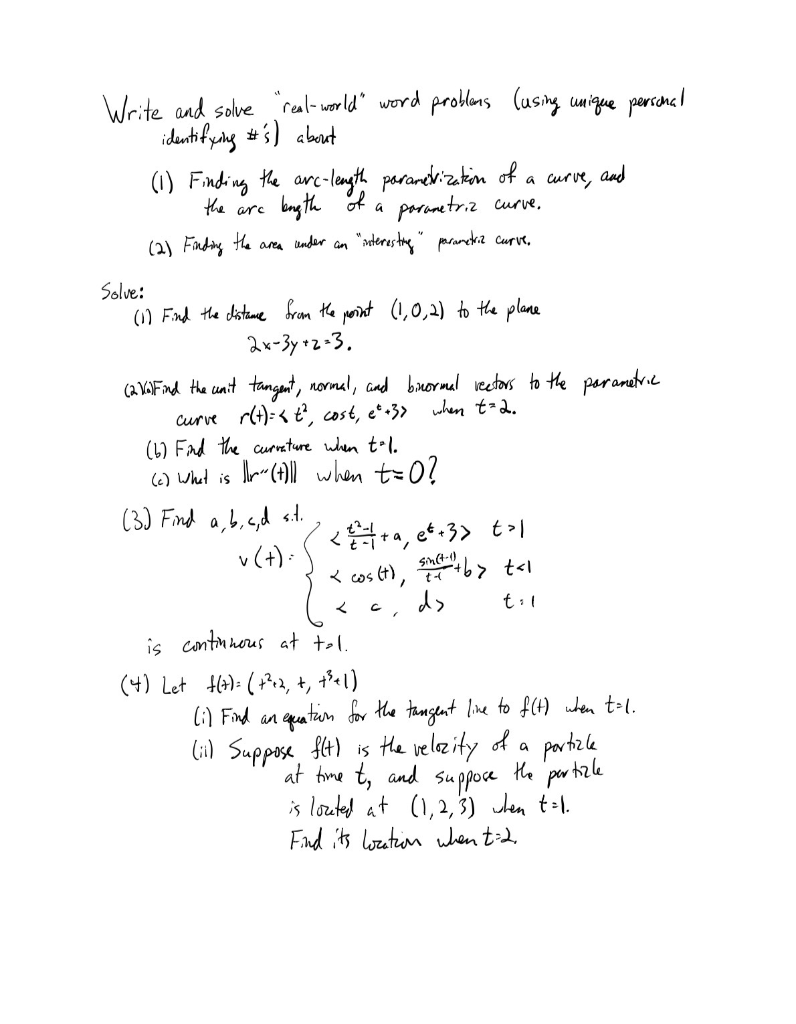 Write and solve "real-world" word problems (using unique personal
identifying #'s) about
(1) Finding the arc-length parametrization of a curve, and
the arc length of a parametric curve.
(2) Finding the area under an "interesting" parametric curve.
Solve:
(1) Find the distance from the point (1,0,2) to the plane
2x-3y+z=3.
(2)(a) Find the unit tangent, normal, and binormal vectors to the parametric
curve r(t)=< t², cost, eᵗ+3> when t=2.
(b) Find the curvature when t=1.
(c) What is ||r''(t)|| when t=0?
(3) Find a,b,c,d s.t.
v(t)= { < (t²-1)/(t-1) + a, eᵗ+3> t>1
< cos(t), sin(t-1)/(t-1) + b> t<1
< c, d> t=1
is continuous at t=1.
(4) Let f(t)= (t²+2, t, t³+1)
(i) Find an equation for the tangent line to f(t) when t=1.
(ii) Suppose f(t) is the velocity of a particle
at time t, and suppose the particle
is located at (1,2,3) when t=1.
Find its location when t=2.